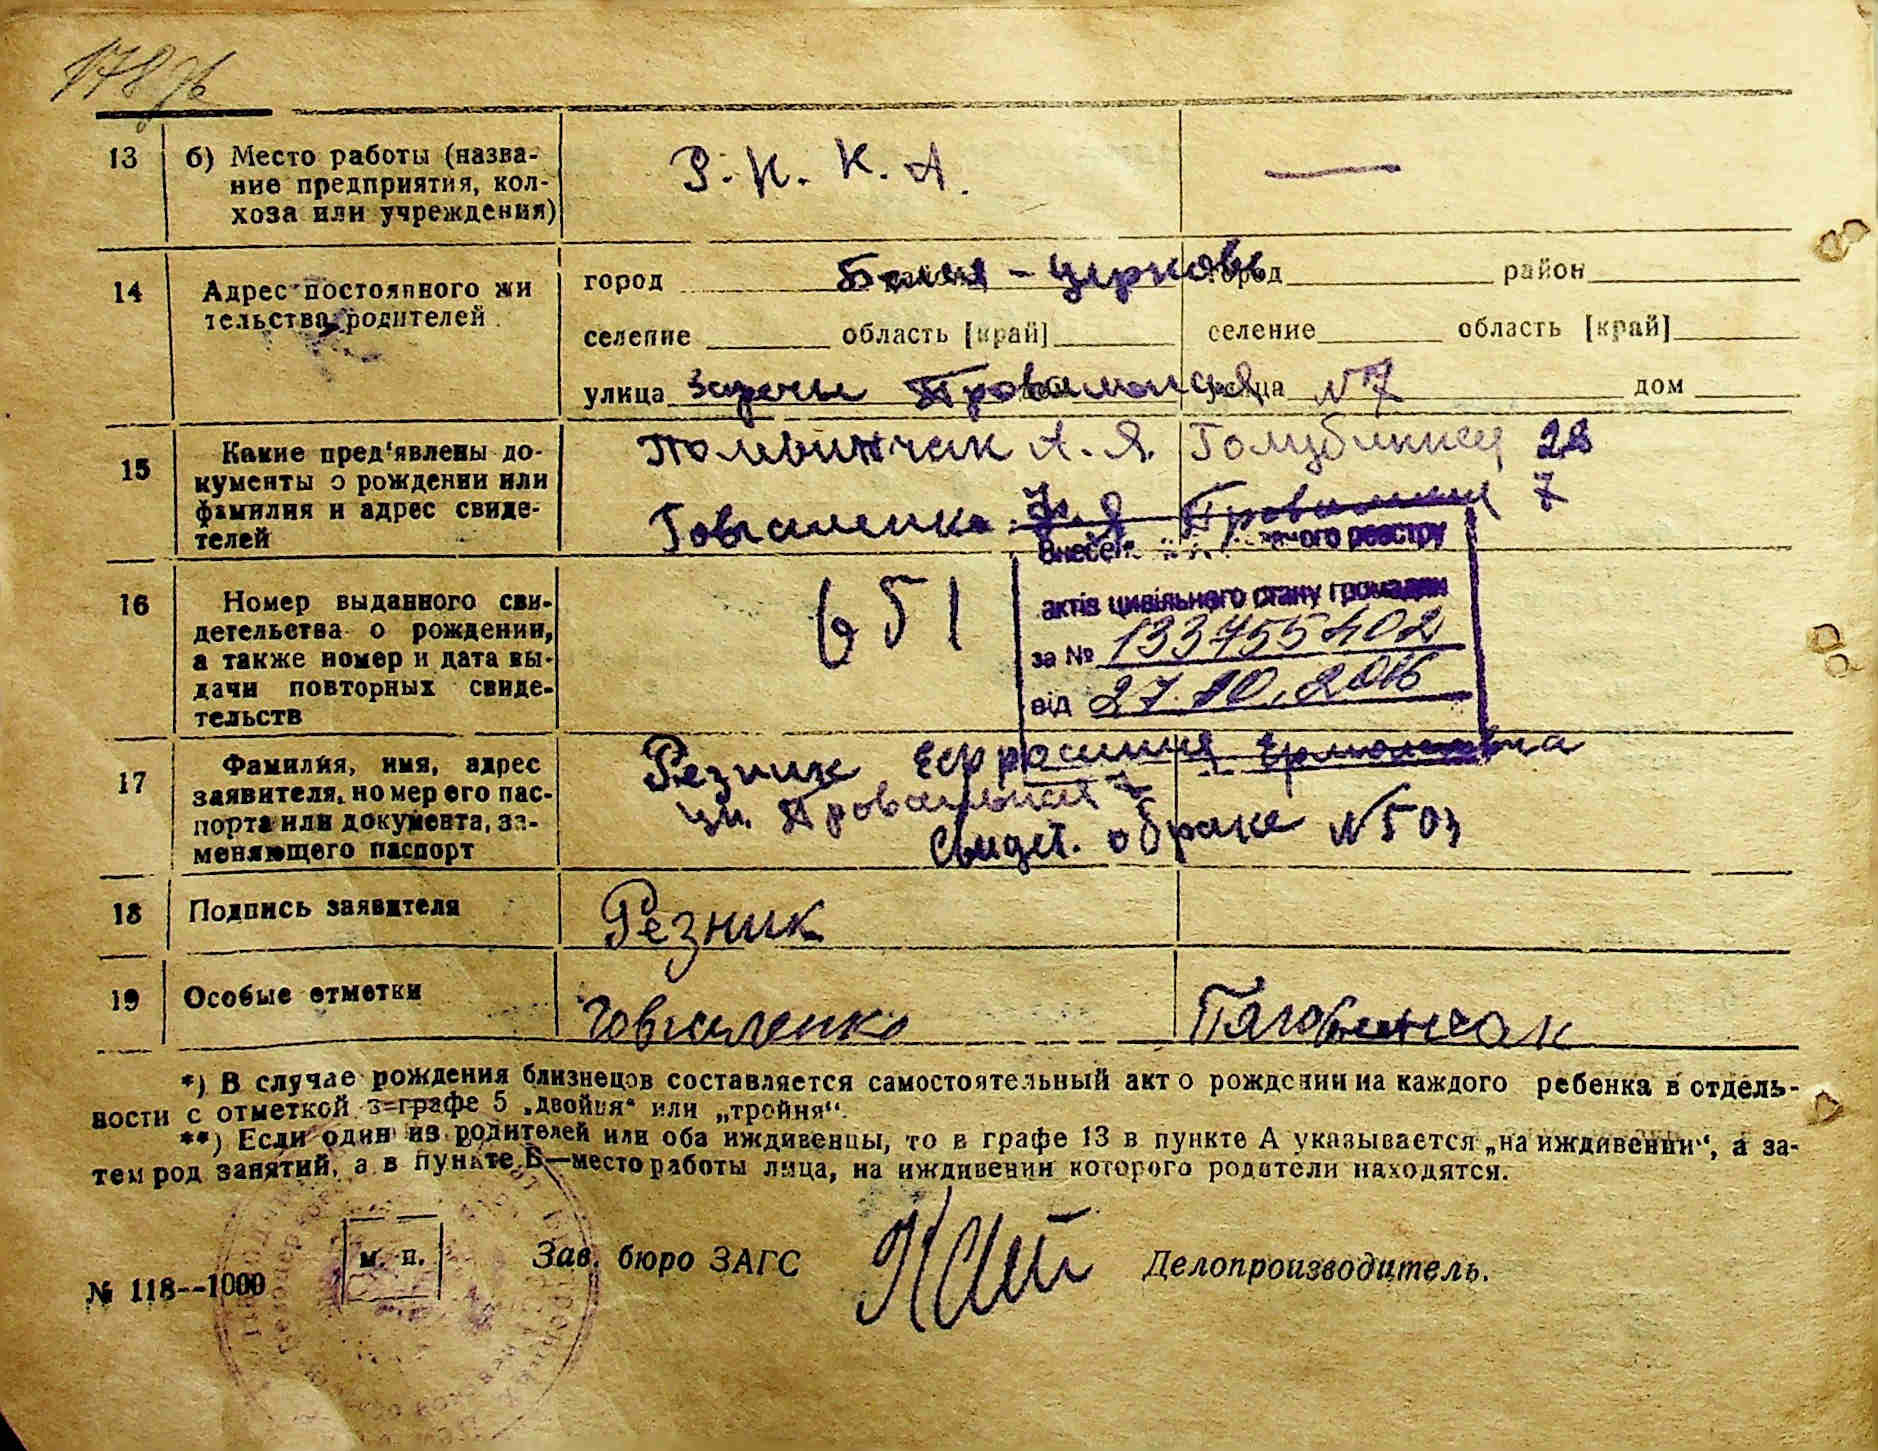 178
13 б) Место работы (назва-
ние предприятия, кол-
хоза или учреждения)
Р. К. К. А. —
14 Адрес постоянного жи
тельства родителей
город Белая - Церковь город район
селение область [край] селение область [край]
улица Заречье №7 дом
15 Какие пред'явлены до-
кументы о рождении или
фамилия и адрес свиде-
телей
А. Я. 28
7
Внесено реєстру
актів цивільного стану громадян
за № 133755402
від 27.10.2016
16 Номер выданного сви-
детельства о рождении,
а также номер и дата вы-
дачи повторных свиде-
тельств
651
17 Фамилия, имя, адрес
заявителя, номер его пас-
порта или документа, за-
меняющего паспорт
Резник Ефросиния
ул. 7
Свидет. о браке №503
18 Подпись заявителя
Резник
19 Особые отметки
*) В случае рождения близнецов составляется самостоятельный акт о рождении на каждого ребенка в отдель-
ности с отметкой в графе 5 „двойня“ или „тройня“.
**) Если один из родителей или оба иждивенцы, то в графе 13 в пункте А указывается „на иждивении“, а за-
тем род занятий, а в пункте Б—место работы лица, на иждивении которого родители находятся.
м. п.
Зав. бюро ЗАГС Делопроизводитель.
№ 118--1000